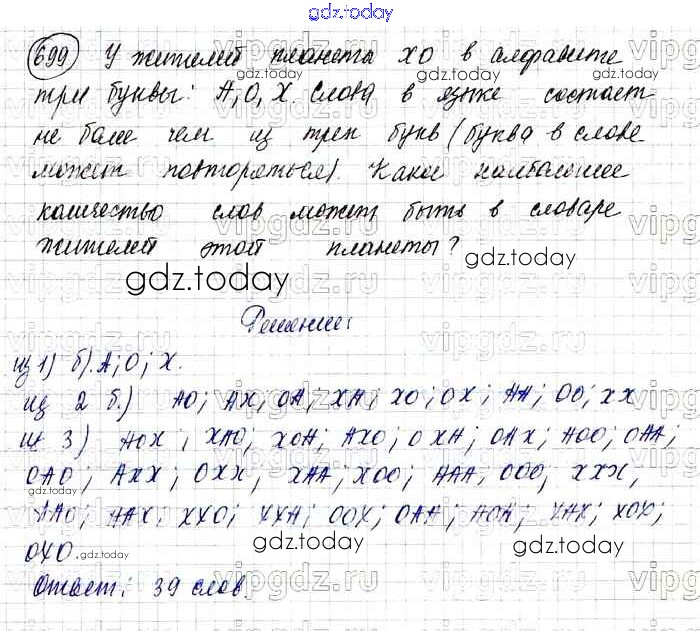 gdz.today
699 У жителей планета ХО в алфавите
три буквы: А, О, Х. Слова в языке состоят
не более чем из трех букв (буква в слове
может повторяться). Какое наибольшее
количество слов может быть в словаре
жителей этой планеты?
gdz.today
Решение:
из 1) б). А; О; Х.
из 2 б.) АО; АХ, ОА; ХА; ХО; ОХ; АА; ОО; ХХ
из 3) АОХ; ХАО; ХОА; АХО; ОХА; ОАХ; АОО; ОАА;
ОАО; АХХ; ОХХ; ХАА; ХОО; ААА; ООО; ХХХ,
ААО; ААХ; ХХО; ХХА; ООХ; ОАА; АОА; ХАХ; ХОХ;
ОХО.
Ответ: 39 слов.